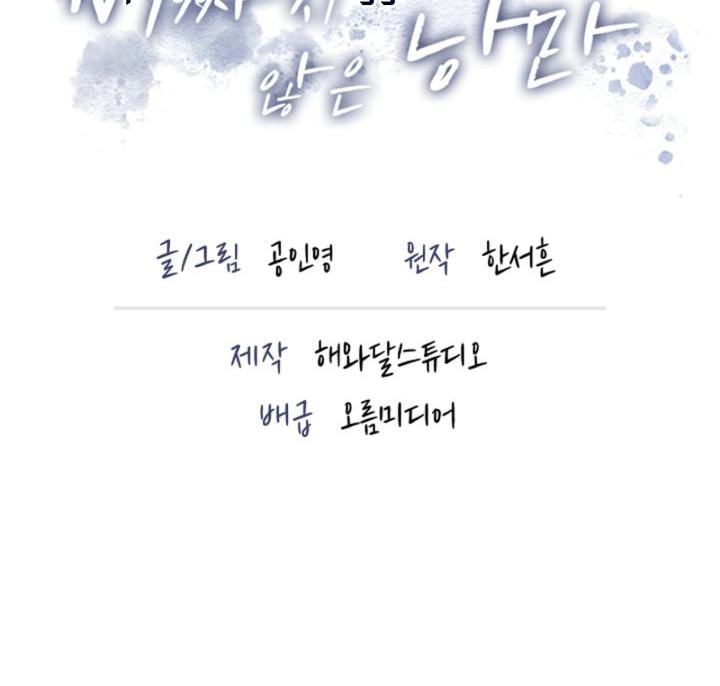 않은 낙마
글/그림 공인영 원작 한서흔
제작 해와달스튜디오
배급 오름미디어